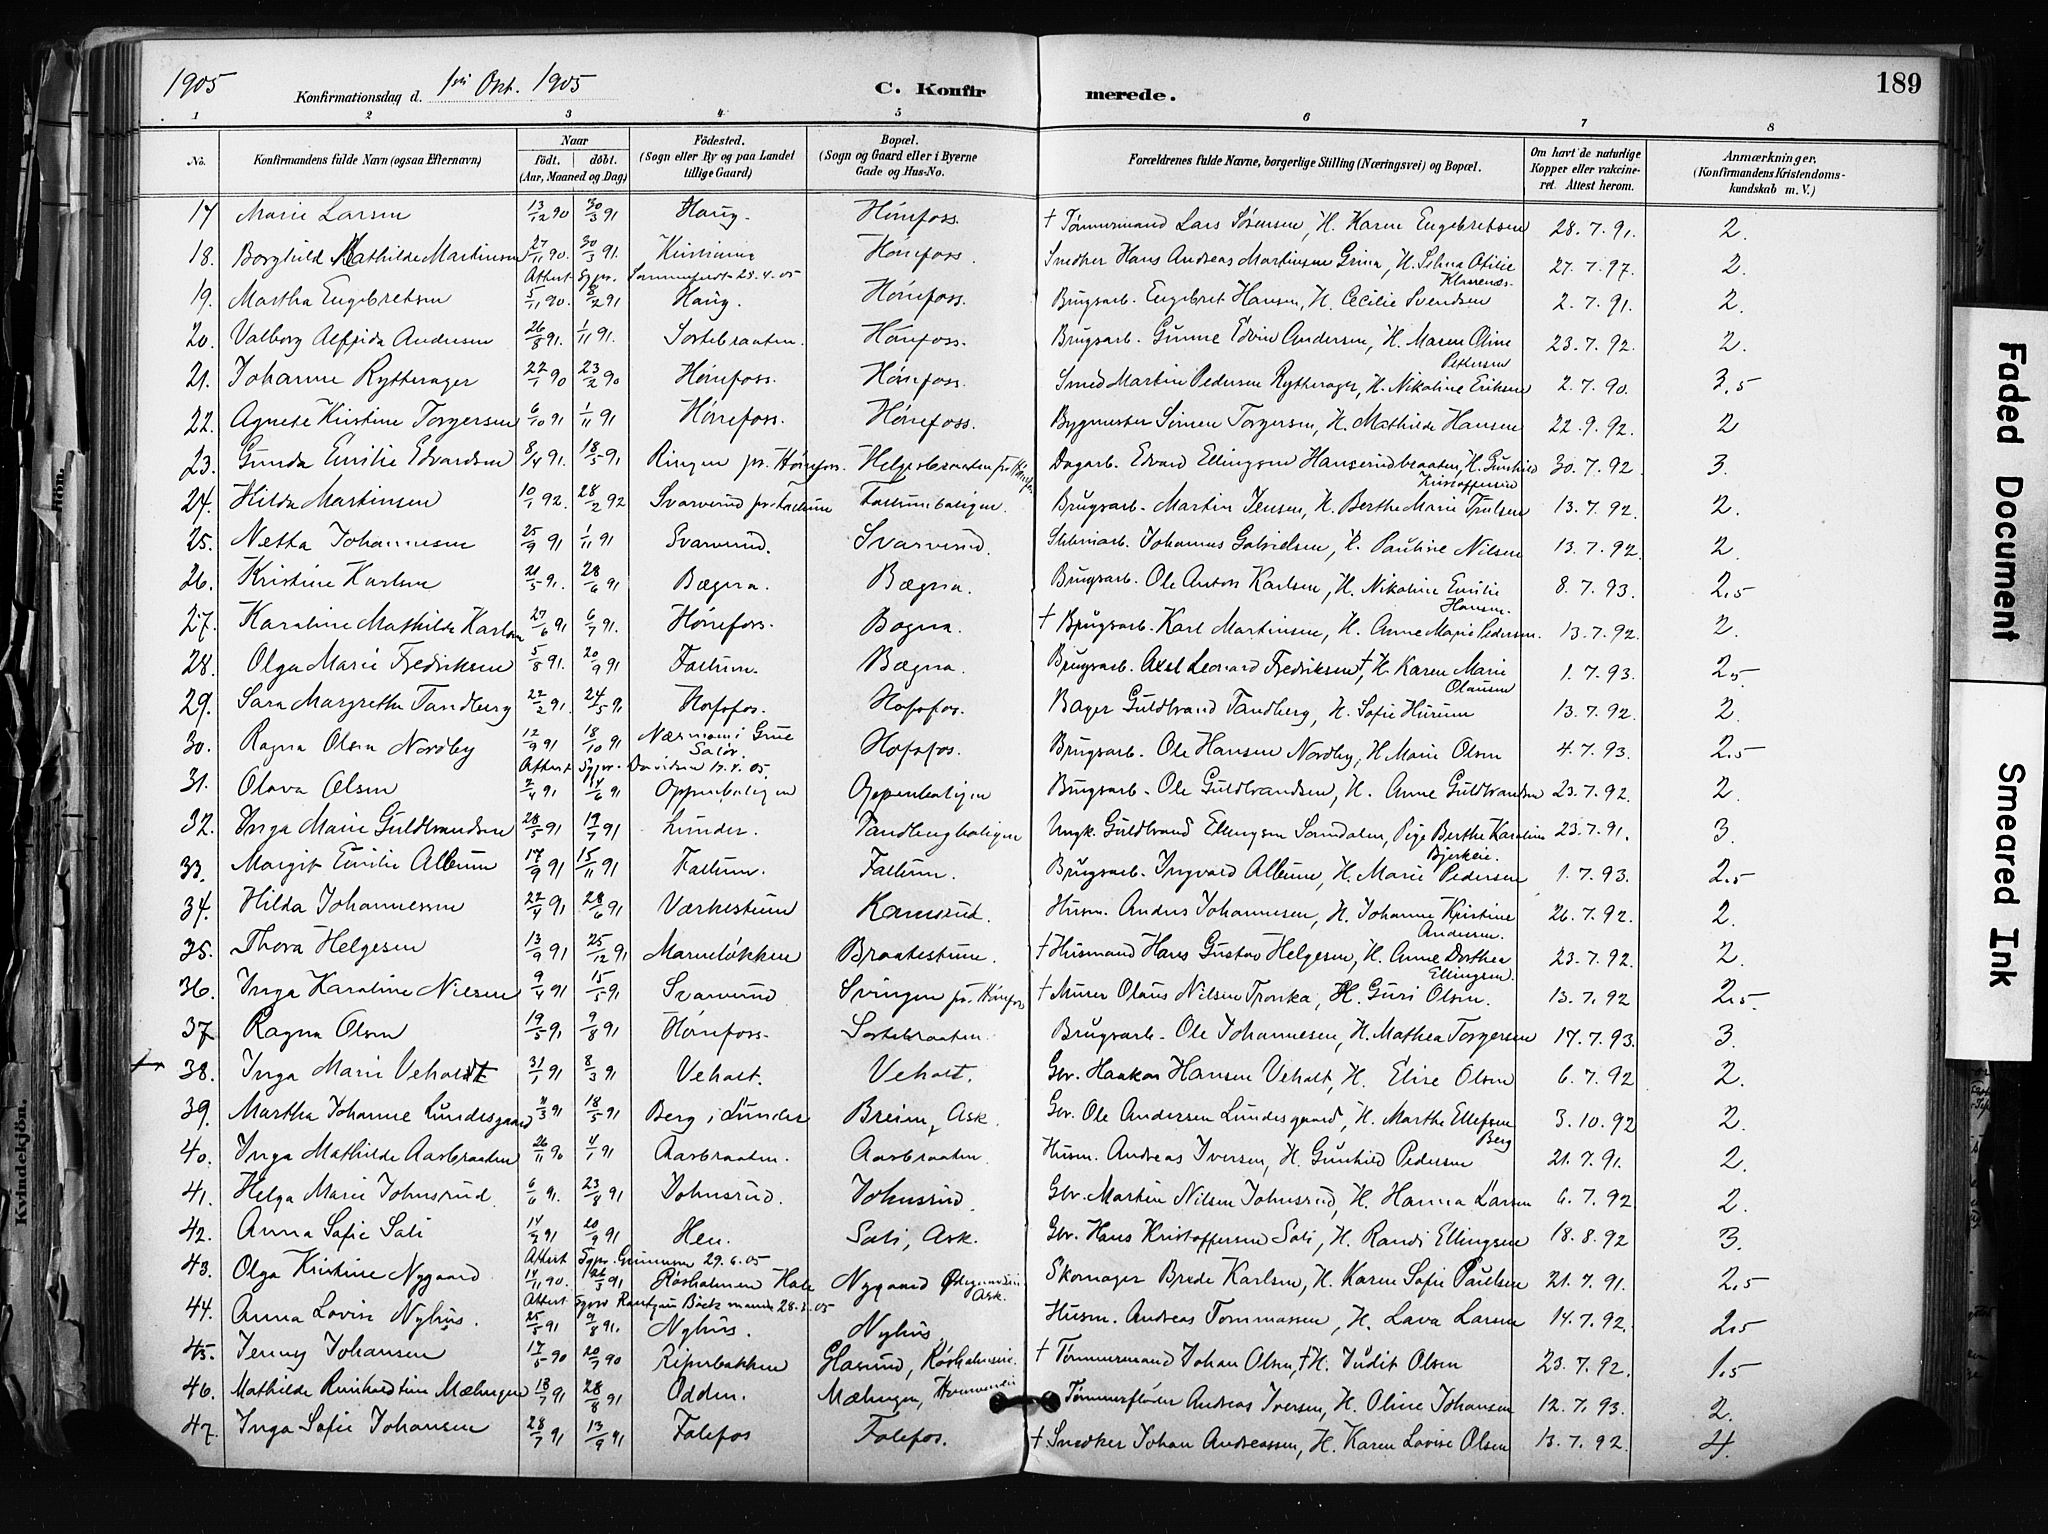 1905
Konfirmationsdag d. 1ste Okt. 1905
C. Konfirmerede.
189
1 2 3 4 5 6 7 8
No. Konfirmandens fulde Navn (ogsaa Efternavn) Naar födt. döbt. (Aar, Maaned og Dag) Födested. (Sogn eller By og paa Landet tillige Gaard) Bopæl. (Sogn og Gaard eller i Byerne Gade og Hus-No. Forældrenes fulde Navne, borgerlige Stilling (Næringsvei) og Bopæl. Om havt de naturlige Kopper eller vakcineret. Attest herom. Anmærkninger. (Konfirmandens Kristendomskundskab m. V.)
17 Marie Larsen 13/12 90 30/3 91 Haug. Hönefoss. † Tömmermand Lars Sörensen, H. Karen Engebretsen 28.7.91. 2.
18. Borghild Mathilde Martinsen 27/11 90. 30/3 91. Kristiania Hönefoss. Snedker Hans Andreas Martinsen Grina, H. Selma Otilie 27.7.97. 2.
Attest Sgpr. 25.4.05
19. Martha Engebretsen 5/11 90. 8/2 91 Haug. Hönefoss. Brugsarb. Engebret Hansen, H. Cecilie Svendsen 2.7.91. 2.
20. Valborg Alfrida Andersen 26/8 91. 1/11 91. Sortebraaten. Hönefoss. Brugsarb. Gunne Edvin Andersen, H. Maren Oline Pettersen 23.7.92. 2.
21. Johanne Rytterager 22/1 90 23/2 90 Hönefoss. Hönefoss. Smed Martin Pedersen Rytterager, H. Nikoline Eriksen 2.7.90. 3.5
22. Agnete Kristine Torgersen 6/10 91 1/11 91 Hönefoss. Hönefoss. Bygmester Simen Torgersen, H. Mathilde Hansen 22.9.92. 2
23. Gunda Emilie Edvardsen 8/4 91. 18/5 91 Ringen pr. Hönefos. Helgesbraaten pr. Hönefos Dagarb. Edvard Ellingsen Hanserudbraaten, H. Gunhild Kristoffersen 30.7.92. 3.
24. Hilda Martinsen 10/1 92. 28/2 92 Svarverud pr. Follum Follumboligen Brugsarb. Martin Jensen, H. Berthe Marie Trulsen 13.7.92. 2.
25. Netta Johannesen 25/9 91 1/11 91 Svarverud. Svarverud. Sliberiarb. Johannes Gabrielsen, H. Pauline Nilsen 13.7.92. 2.
26. Kristine Karlsen 21/5 91. 28/6 91 Bægna. Bægna. Brugsarb. Ole Anton Karlsen, H. Nikoline Emilie Hansen. 8.7.93. 2.5
27. Karoline Mathilde Karlsen 27/6 91 6/7 91. Hönefoss. Bægna. † Brugsarb. Karl Martinsen, H. Anne Marie Pedersen. 13.7.92. 2.
28. Olga Marie Fredriksen 5/8 91. 20/9 91 Follum. Bægna. Brugsarb. Axel Leonard Fredriksen, † H. Karen Marie Olausen 1.7.93. 2.5
29. Sara Margrethe Tandberg 22/2 91. 24/5 91 Hofsfos. Hofsfos. Bager Guldbrand Tandberg, H. Sofie Hurum 13.7.92. 2.
30. Ragna Olsen Nordby 12/9 91 18/10 91 Næsmoen i Grue Solör. Hofsfos. Brugsarb. Ole Hansen Nordby, H. Marie Olsen 4.7.93. 2.5
Attest Sgpr. Davidsen 17.4.05.
31. Olava Olsen 2/4 91 14/6 91 Oppenboligen Oppenboligen Brugsarb. Ole Guldbrandsen, H. Anne Guldbrandsen 23.7.92. 2.
32. Inga Marie Guldbrandsen 28/5 91 19/7 91 Lunder. Tandbergboligen Ungk. Guldbrand Ellingsen Somdalen, Pige Berthe Karoline Bjerkeie. 23.7.91. 3.
33. Margit Emilie Album 17/9 91 15/11 91 Follum. Follum. Brugsarb. Ingvald Album, H. Marie Pedersen 1.7.93. 2.5
34. Hilda Johannessen 22/4 91 28/6 91 Værkestuen Kamrud. Husm. Anders Johannesen, H. Johanne Kristine Andersen. 26.7.92. 2.
35. Thora Helgesen 13/9 91 25/12 91 Marielökken Braatestuen. † Husmand Hans Gustav Helgesen, H. Anne Dorthea Ellingsen. 23.7.92. 2.
36. Inga Karoline Nilsen 9/4 91 15/5 91 Svarverud Svingen pr. Hönefos † Murer Olaus Nilsen Tronka, H. Guri Olsen. 13.7.92 2.5
37 Ragna Olsen 19/5 91 9/8 91 Hönefoss. Sortebraaten. Brugsarb. Ole Johannesen, H. Mathea Torgersen 17.7.93. 3.
38. Inga Marie Veholt 31/1 91 8/3 91 Veholt. Veholt. Gbr. Haakon Hansen Veholt, H. Elise Olsen 6.7.92 2.
39. Martha Johanne Lundesgaard 11/3 91 18/5 91 Berg i Lunder Breien, Ask. Gbr. Ole Andersen Lundesgaard, H. Marthe Ellefsen Berg 3.10.92 2.
40. Inga Mathilde Aasbraaten 26/11 90 4/1 91 Aasbraaten. Aasbraaten. Husm. Andreas Iversen, H. Gunhild Pedersen 21.7.91. 2.
41. Helga Marie Johnsrud 6/6 91. 23/8 91 Johnsrud. Johnsrud. Gbr. Martin Nilsen Johnsrud, H. Hanna Larsen 6.7.92 2.
42. Anna Sofie Soli 14/7 91 20/9 91 Hen. Soli, Ask. Gbr. Hans Kristoffersen Soli, H. Randi Ellingsen 18.8.92 3.
Attest Sgpr. 29.6.05
43. Olga Kristine Nygaard 14/11 90. 26/3 91 Rösholmen Hole Nygaard Ask. Skomager Brede Karlsen, H. Karen Sofie Paulsen 21.7.91. 2.5
Attest Sgpr.
44. Anna Lovise Nyhus. 25/5 91 9/8 91. Nyhus. Nyhus. Husm. Andreas Tommassen, H. Lava Larsen 14.7.92. 2.5
45. Jenny Johansen 17/5 90 20/7 90 Riperbakken Glasrud, Rösholmeie. † Tömmermand Johan Olsen, † H. Judit Olsen 23.7.92. 1.5
46. Mathilde Reinhardtine Mælingen 13/7 91 28/8 91 Odden. Mælingen, Tömmerfløder Andreas Iversen, H. Oline Johansen 12.7.93. 2.
47. Inga Sofie Johansen 28/7 91 13/9 91 Folefos Folefos. † Snedker Johan Andreassen, H. Karen Lovise Olsen 13.7.92. 4.
Kvindekjön.
Faded Document
Smeared Ink